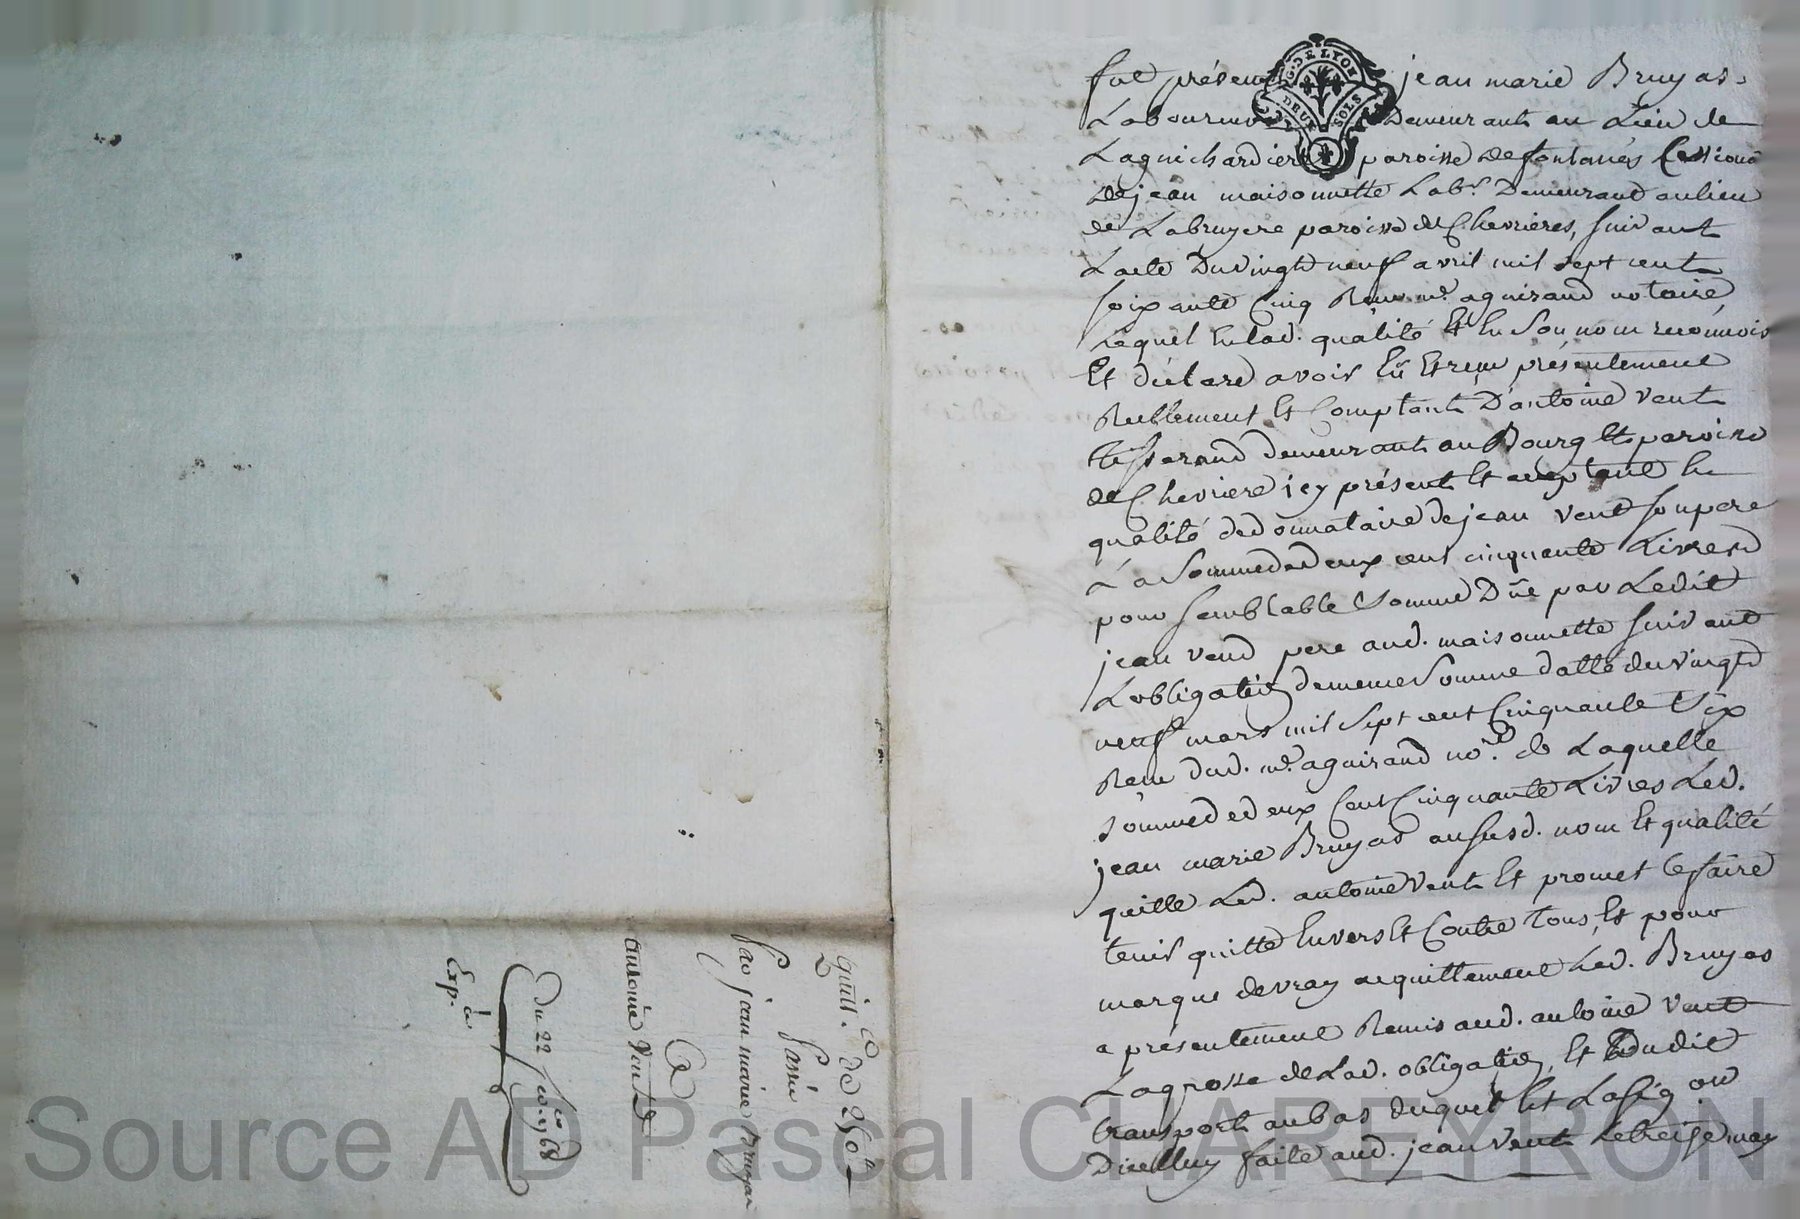 fut présent jean marie Bruyas
Laboureur Demeurant au Lieu de
Laguichardiere paroisse de fontanés Cessionre
de jean maisonnette Labr. Demeurant au lieu
de Labruyere paroisse de Chevrieres, suivant
Lacte Du vingt neuf avril mil sept cent
soixante Cinq Recu me. aguiraud notaire
Lequel en lad. qualité Et En Son nom reconnois
Et déclare avoir Eû Et reçu présentement
Reellement Et Comptant D'antoine Vent
tisserand demeurant au Bourg Et paroisse
de Chevriere icy présent Et acceptant En
qualité de donnataire de jean Vent son pere
La Somme de deux cent cinquante Livres
pour semblable Somme Dûe par Ledit
jean Vend pere aud. maisonnette suivant
Lobligation de meme Somme datté du vingt
neuf mars mil sept cent Cinquante Six
Recu dud. me. aguiraud nore. de Laquelle
Somme de deux Cent Cinquante Livres Led.
jean marie Bruyas au susd. nom Et qualité
quitte Led. antoine Vent Et promet Le faire
tenir quitte Envers Et Contre Tous, Et pour
marque de vray acquittement Led. Bruyas
a présentement Remis aud. antoine Vent
La grosse de Lad. obligation, Et dudit
transport au bas duquel Et La sig on
Dicelluy faite aud. jean Vent Le treize may
quitt.ce de 250tt
Passée
Par jean marie Bruyas
A
antoine Vent
Du 22 1768
Exp. à
G. DE LYON
DEUX SOLS
Source AD Pascal CHAREYRON